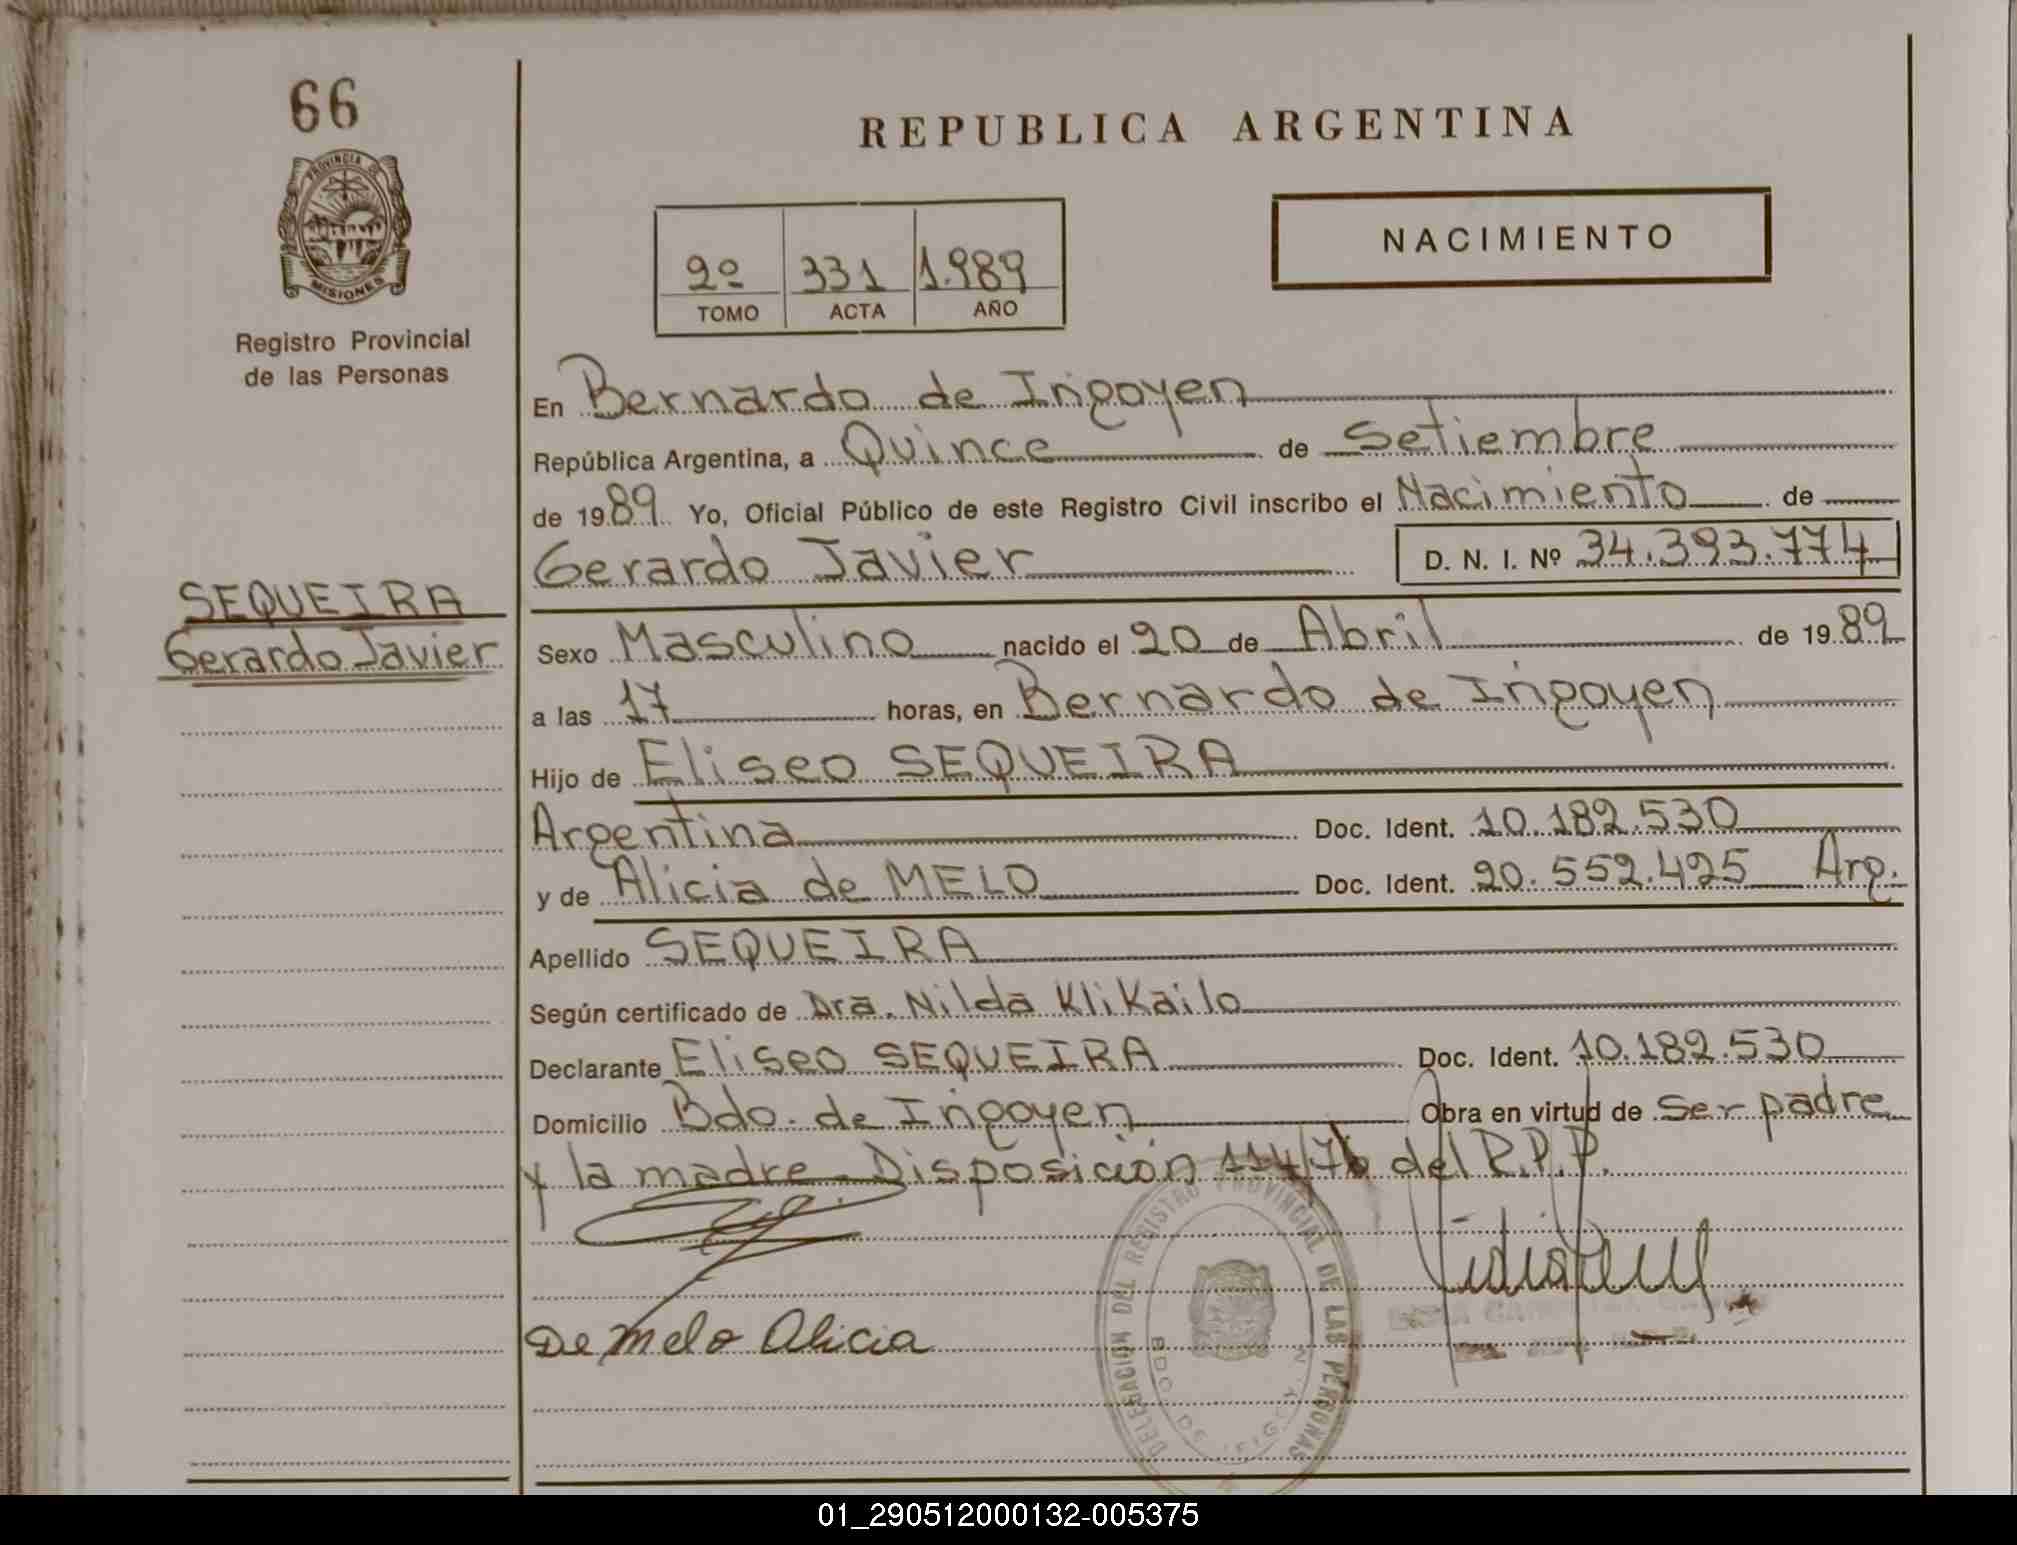 66
PROVINCIA DE
MISIONES
Registro Provincial
de las Personas
SEQUEIRA
Gerardo Javier
REPUBLICA ARGENTINA
NACIMIENTO
2º 331 1.989
TOMO ACTA AÑO
En Bernardo de Irigoyen
República Argentina, a Quince de Setiembre
de 1989 Yo, Oficial Público de este Registro Civil inscribo el Nacimiento de
Gerardo Javier D. N. I. Nº 34.393.774
Sexo Masculino nacido el 20 de Abril de 1989
a las 17 horas, en Bernardo de Irigoyen
Hijo de Eliseo SEQUEIRA
Argentina Doc. Ident. 10.182.530
y de Alicia de MELO Doc. Ident. 20.552.425 Arg.
Apellido SEQUEIRA
Según certificado de Dra. Nilda Klikailo
Declarante Eliseo SEQUEIRA Doc. Ident. 10.182.530
Domicilio Bdo. de Irigoyen Obra en virtud de Ser padre
y la madre. Disposición 114/76 del R.P.P.
De Melo Alicia
DELEGACION DEL REGISTRO PROVINCIAL DE LAS PERSONAS
BDO DE
01_290512000132-005375